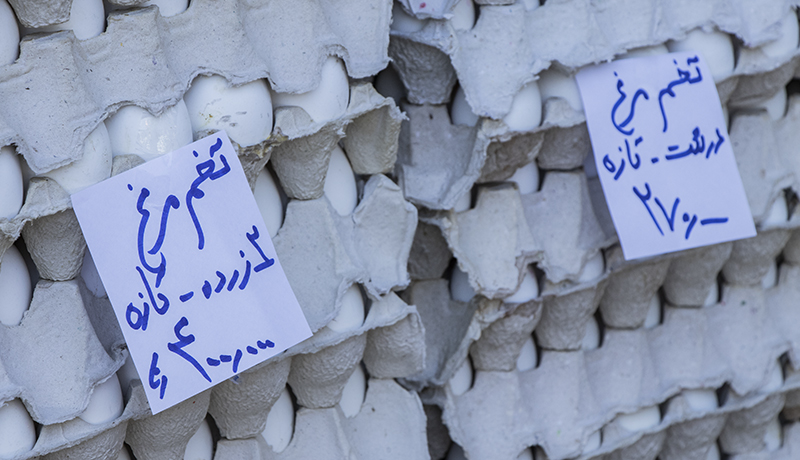 تخم مرغ
۲ زرده - تازه
۴۰۰,۰۰۰ ریا
تخم مرغ
درشت - تازه
۲۷۰,۰۰۰